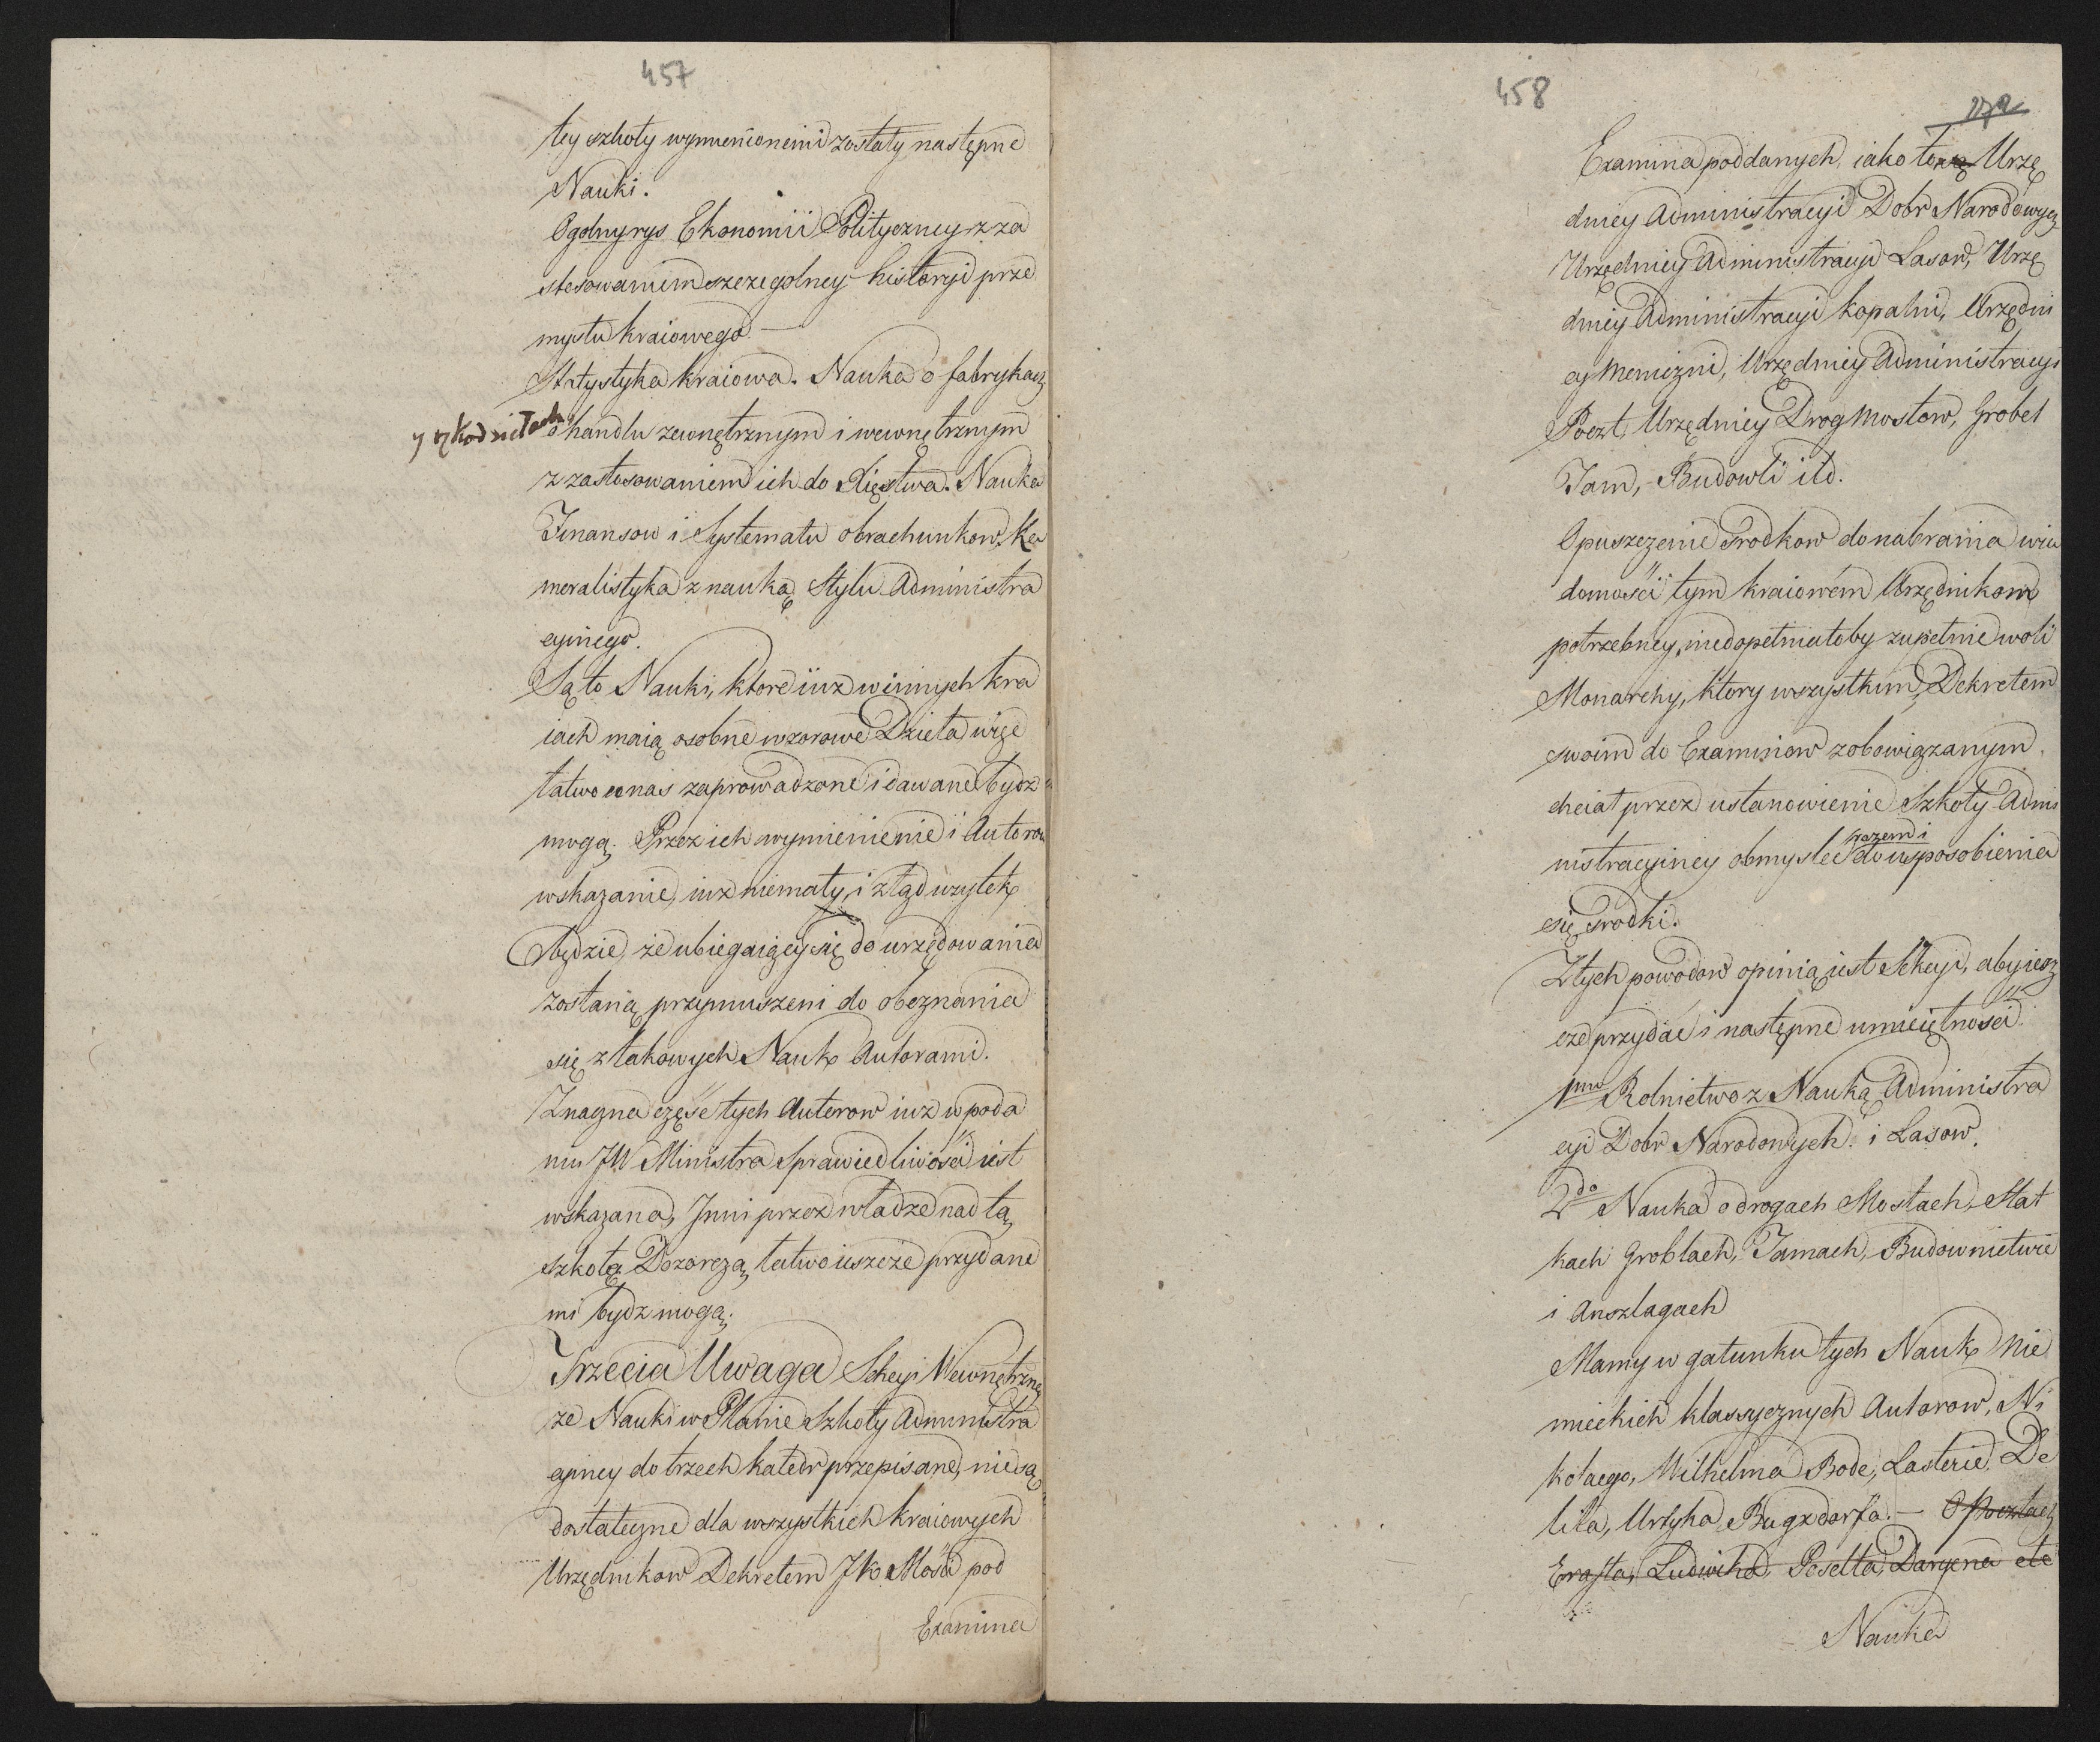 457
tey szkoły wymienionemi zostały następne
Nauki.
Ogolny rys Ekonomii Polityczney z za
stosowaniem szczegolney historyi prze
mysłu kraiowego —
Statystyka kraiowa. Nauka o fabrykach
y rękodziełach o handlu zewnętrznym i wewnętrznym
z zastosowaniem ich do Xięstwa. Nauka
Finansow i Systematu obrachunkow. Ka
meralistyka z nauką Stylu Administra
cyinego.
Są to Nauki, ktore iuz w innych kra
iach maią osobne wzorowe Dzieła więc
łatwo u nas zaprowadzone i dawane bydz
mogą. Przez ich wymienienie i Autorow
wskazanie, iuz niemały i ztąd uzytek
będzie, że ubiegaiący się do urzędowania
zostaną przymuszeni do obeznania
się z takowych Nauk Autorami.
Znaczna część tych Autorow iuz w poda
niu JW Ministra Sprawiedliwości iest
wskazana, Inni przez władze nad tą
szkołą Dozorczą łatwo ieszcze przydane
mi bydz mogą.
Trzecia Uwaga Sekcyi Wewnętrzney
ze Nauki w Planie Szkoły Administra
cyiney do trzech katedr przepisane, nie są
dostateczne dla wszystkich kraiowych
Urzędnikow Dekretem JK Mości pod
Examina
458
Examina poddanych, iako to są Urzę
dnicy Administracyi Dobr Narodowych
Urzędnicy Administracyi Lasow, Urzę
dnicy Administracyi kopalni, Urzędni
cy Mennizni, Urzędnicy Administracyi
Poczt, Urzędnicy Drog Mostow, Grobel
Tam, Budowli itd.
Opuszczenie srodkow do nabrania wia
domości tym kraiowém Urzędnikom
potrzebney, niedopełniałoby zupełnie woli
Monarchy, ktory wszystkim, Dekretem
swoim do Examinow zobowiązanym
chciał przez ustanowienie Szkoły Admi
razem i
nistracyiney obmyslec do usposobienia
się srodki.
Z tych powodow opinią iest Sekcyi, aby iesz
cze przydać i następne umieiętności.
1mo Rolnictwo z Nauką Administra
cyi Dobr Narodowych i Lasow.
2do Nauka o drogach Mostach, Stat
kach Groblach, Tamach, Budownictwie
i Anszlagach
Mamy w gatunku tych Nauk Nie
mieckich klassycznych Autorow, Ni
kolaego, Wilhelma Bode, Lasterie, De
lila, Urtyka, Bugzdorfa. — O Pocztach
Erasta, Ludwika, Poselta, Daryena etc
Nauka